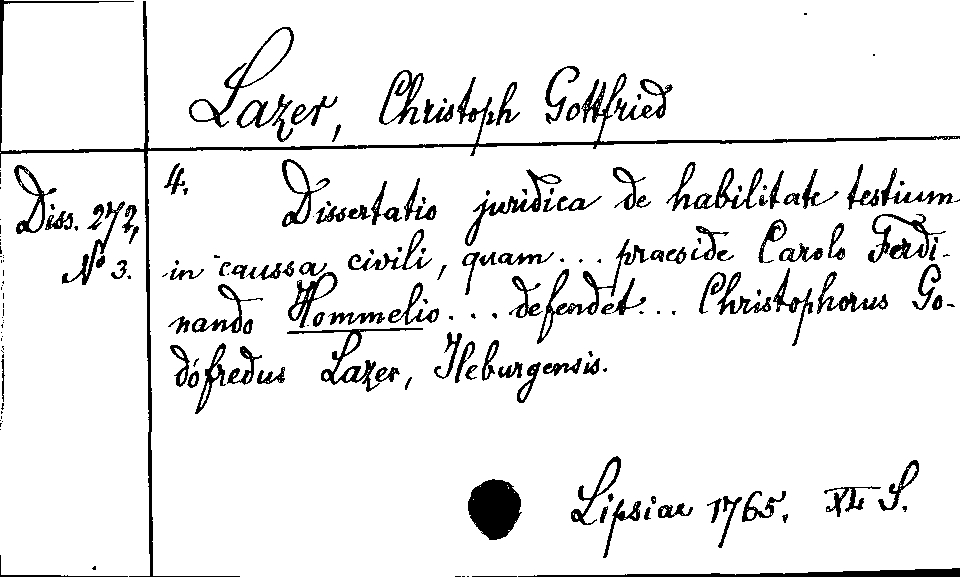 Lazer, Christoph Gottfried
Diss. 272,
No 3.
4. Dissertatio juridica de habilitate testium
in caussa civili, quam... praeside Carolo Ferdi-
nando Hommelio... defendet... Christophorus Go-
dofredus Lazer, Ileburgensis.
Lipsiae 1765. XL S.